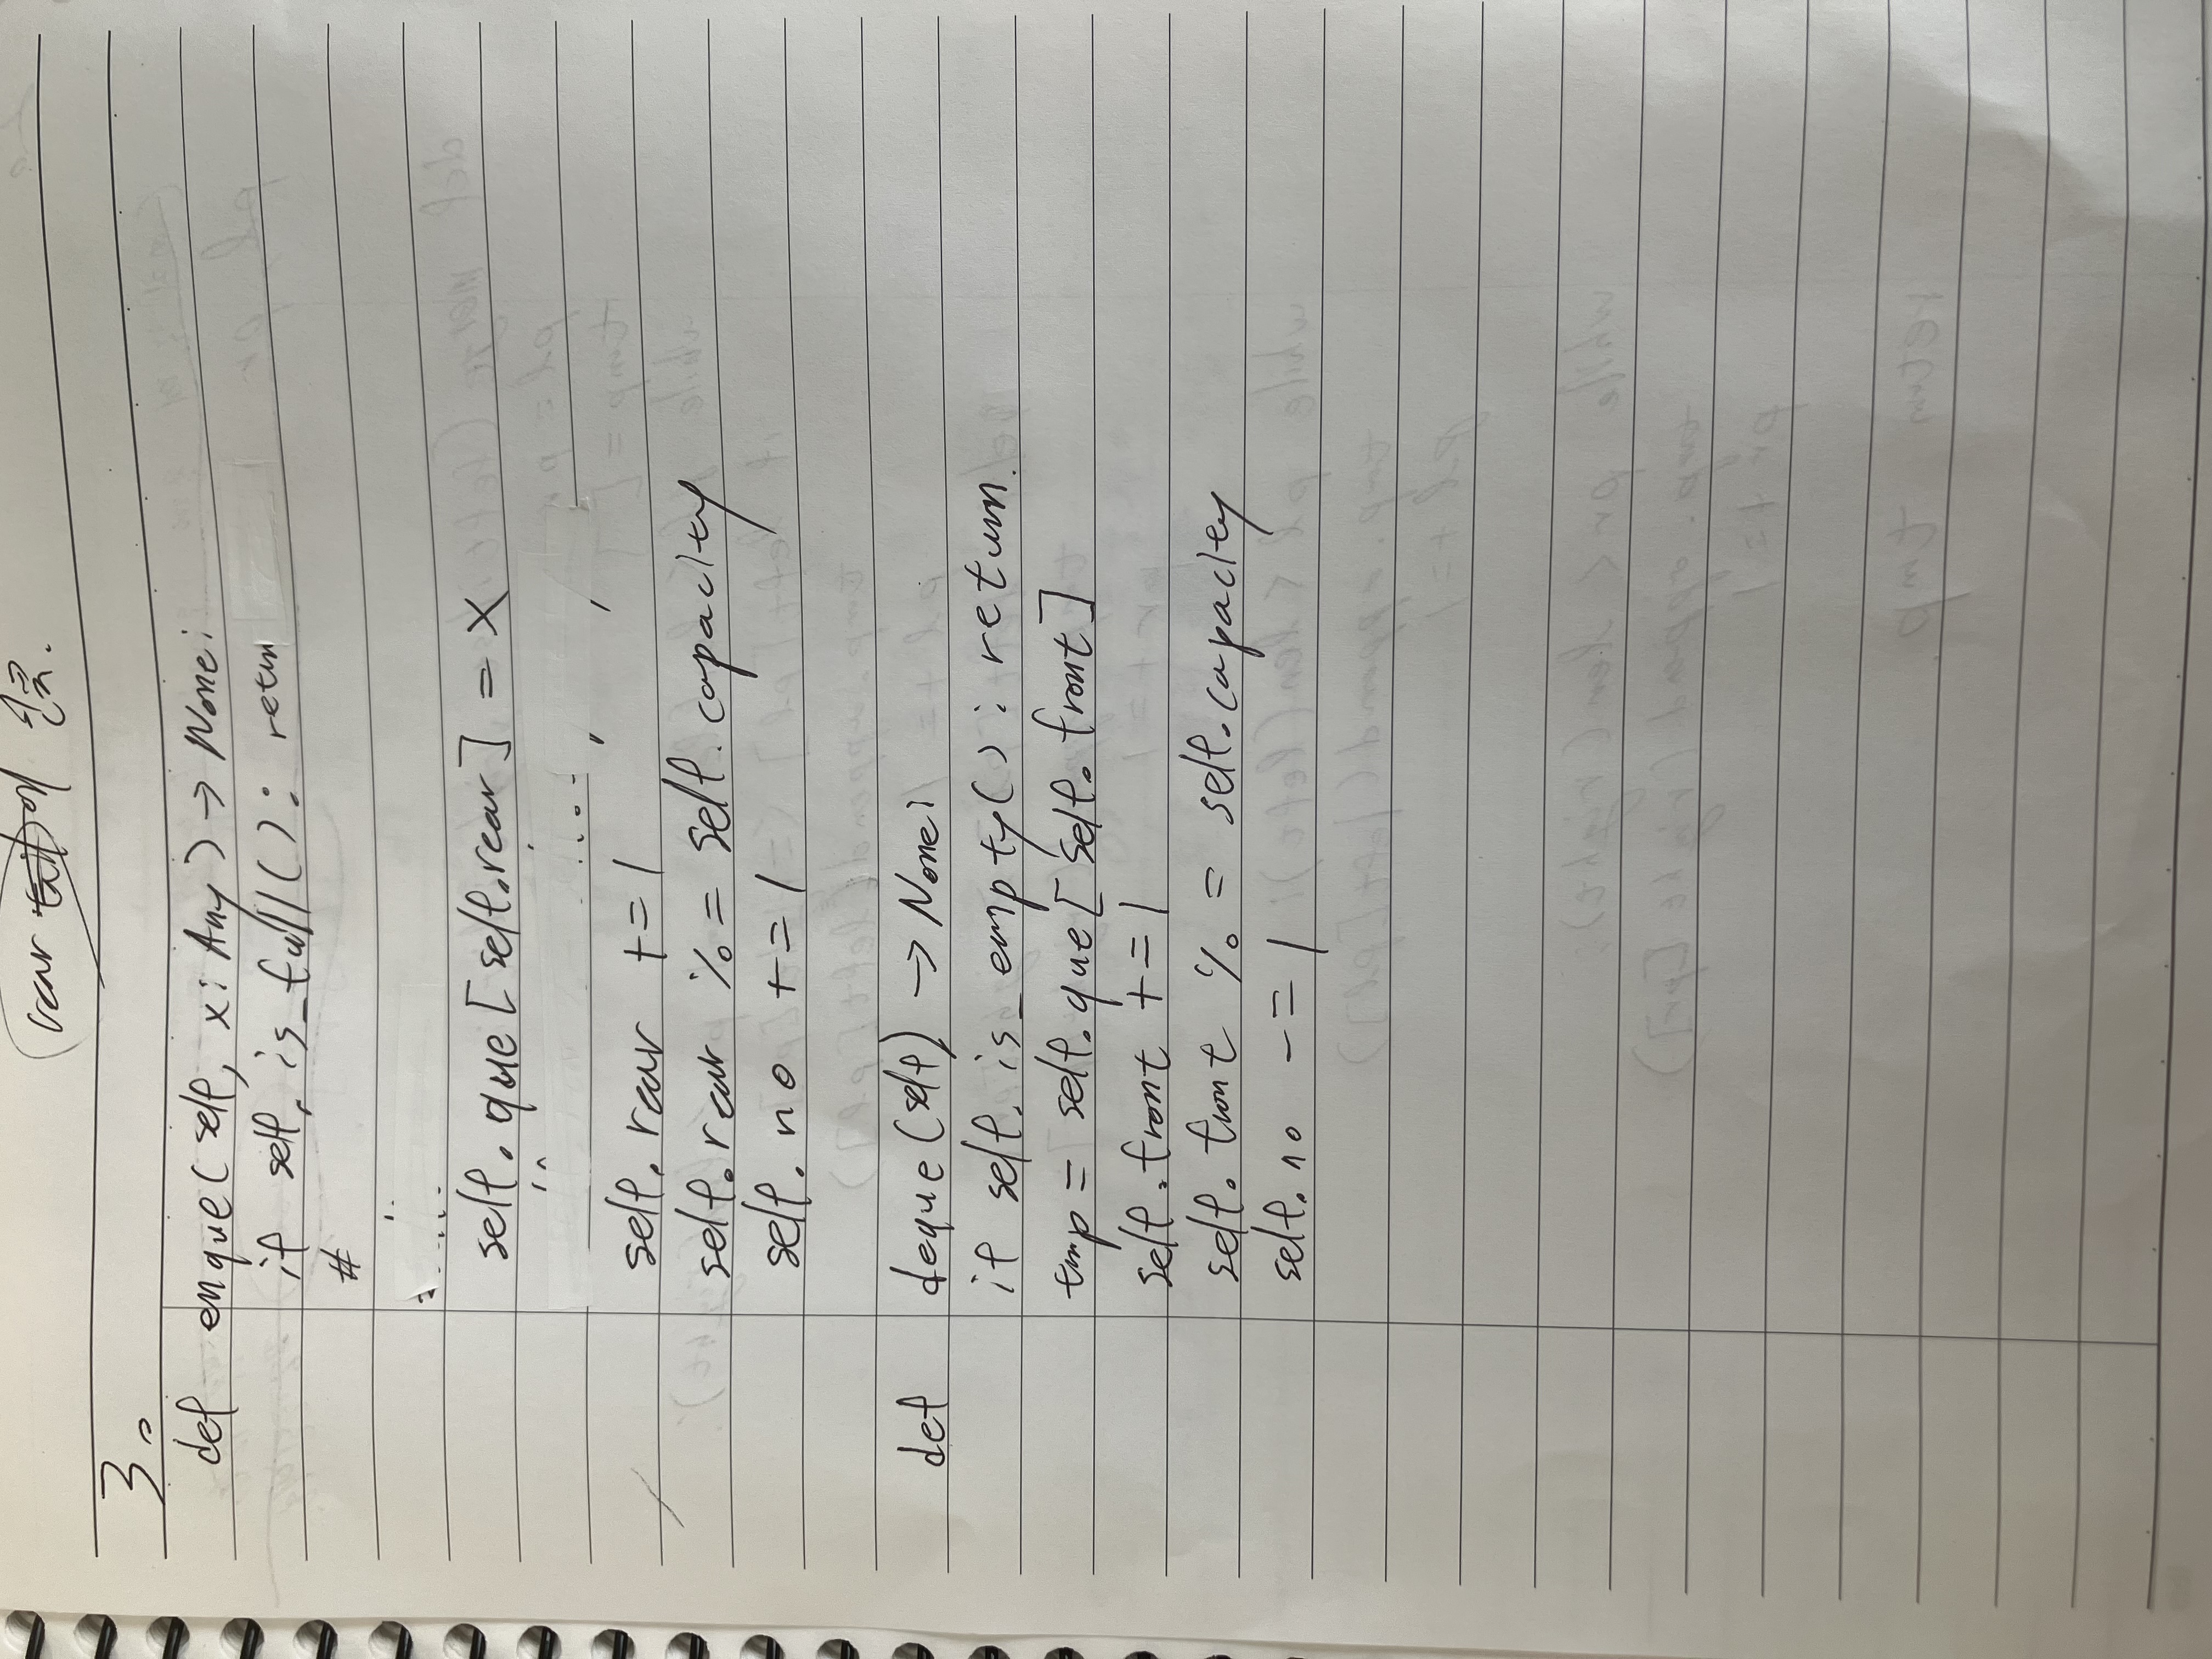 rear 에
3.
def enque(self, x: Any) → None:
if self.is_full(): retun
#
self.que[self.rear] = x
self.rear += 1
self.rear %= self.capacity
self.no += 1
def deque(self) → None:
if self.is_empty(): return.
tmp = self.que[self.front]
self.front += 1
self.front %= self.capacity
self.no -= 1